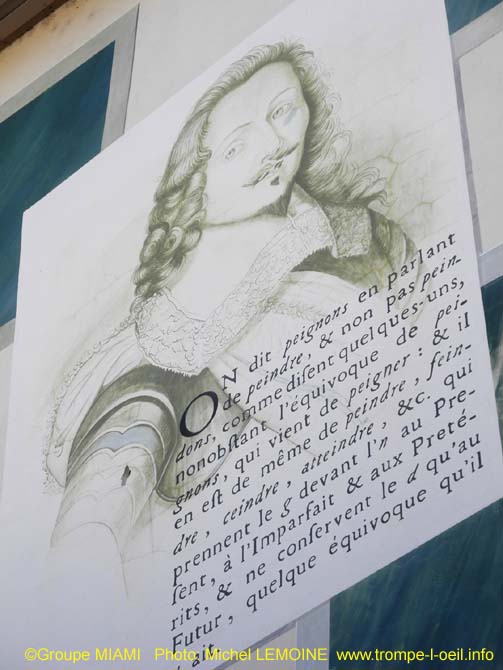 ON dit peignons en parlant
de peindre, & non pas pein-
dons, comme diſent quelques-uns,
nonobſtant l'équivoque de pei-
gnons, qui vient de peigner : & il
en eſt de même de peindre, fein-
dre, ceindre, atteindre, &c. qui
prennent le g devant l'n au Pre-
ſent, à l'Imparfait & aux Preté-
rits, & ne conſervent le d qu'au
Futur, quelque équivoque qu'il
©Groupe MIAMI Photo: Michel LEMOINE www.trompe-l-oeil.info